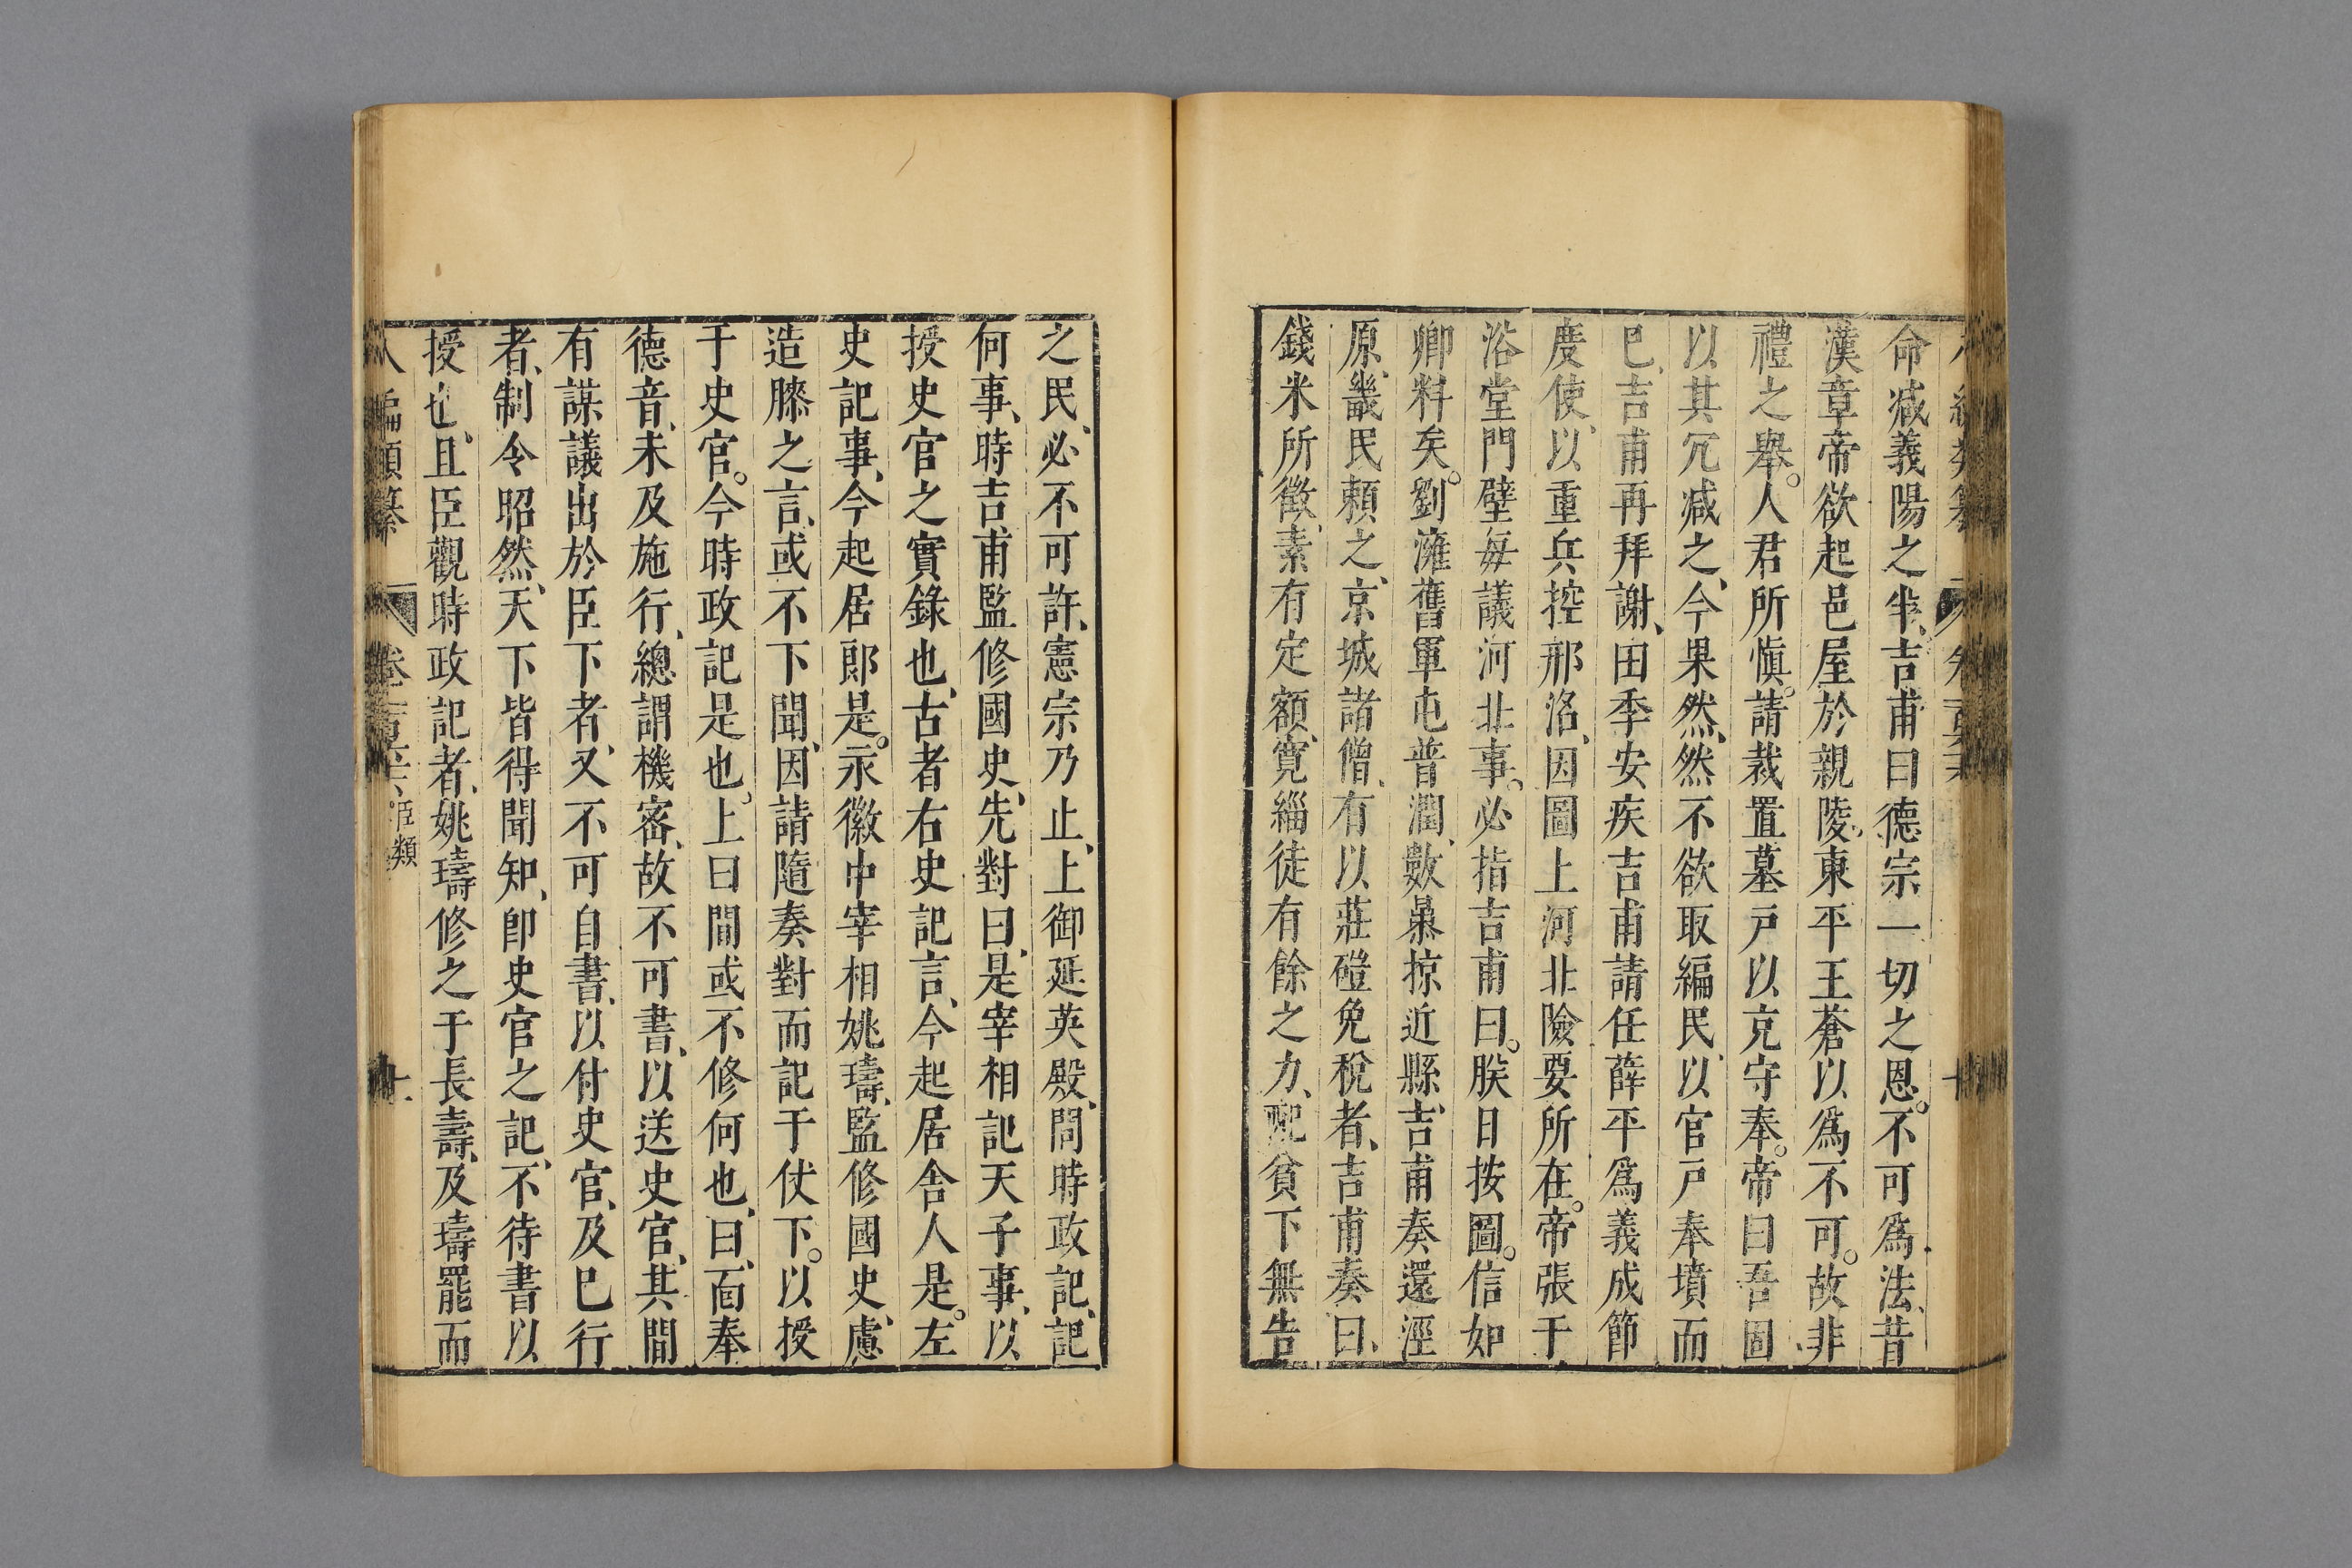 命减義陽之半、吉甫曰德宗一切之恩。不可爲法、昔
漢章帝欲起邑屋於親陵。東平王蒼以爲不可。故非
禮之舉。人君所慎。請裁置墓戸以充守奉。帝曰吾固
以其冗减之、今果然、然不欲取編民、以官戸奉墳而
已、吉甫再拜謝、田季安疾吉甫請任薛平爲義成節
度使、以重兵控邢洺、因圖上河北險要所在。帝張于
浴堂門壁每議河北事。必指吉甫曰。朕日按圖。信如
卿料矣。劉澭舊軍屯普潤、數㬥掠近縣、吉甫奏還涇
原、畿民賴之、京城諸僧、有以莊磑免稅者、吉甫奏曰、
錢米所徵、素有定額、寬緇徒有餘之力、配貧下無告
之民、必不可許、憲宗乃止、上御延英殿、問時政記、記
何事、時吉甫監修國史、先對曰、是宰相記天子事、以
授史官之實錄也、古者右史記言、今起居舍人是。左
史記事、今起居郎是。永徽中宰相姚璹、監修國史、慮
造膝之言、或不下聞、因請隨奏對而記于仗下。以授
于史官。今時政記是也。上曰間或不修何也、曰、面奉
德音、未及施行、總謂機密、故不可書、以送史官、其間
有謀議出於臣下者、又不可自書、以付史官、及已行
者、制令昭然、天下皆得聞知、即史官之記、不待書以
授也、且臣觀時政記者、姚璹修之于長壽、及璹罷而
八編類纂
臣類